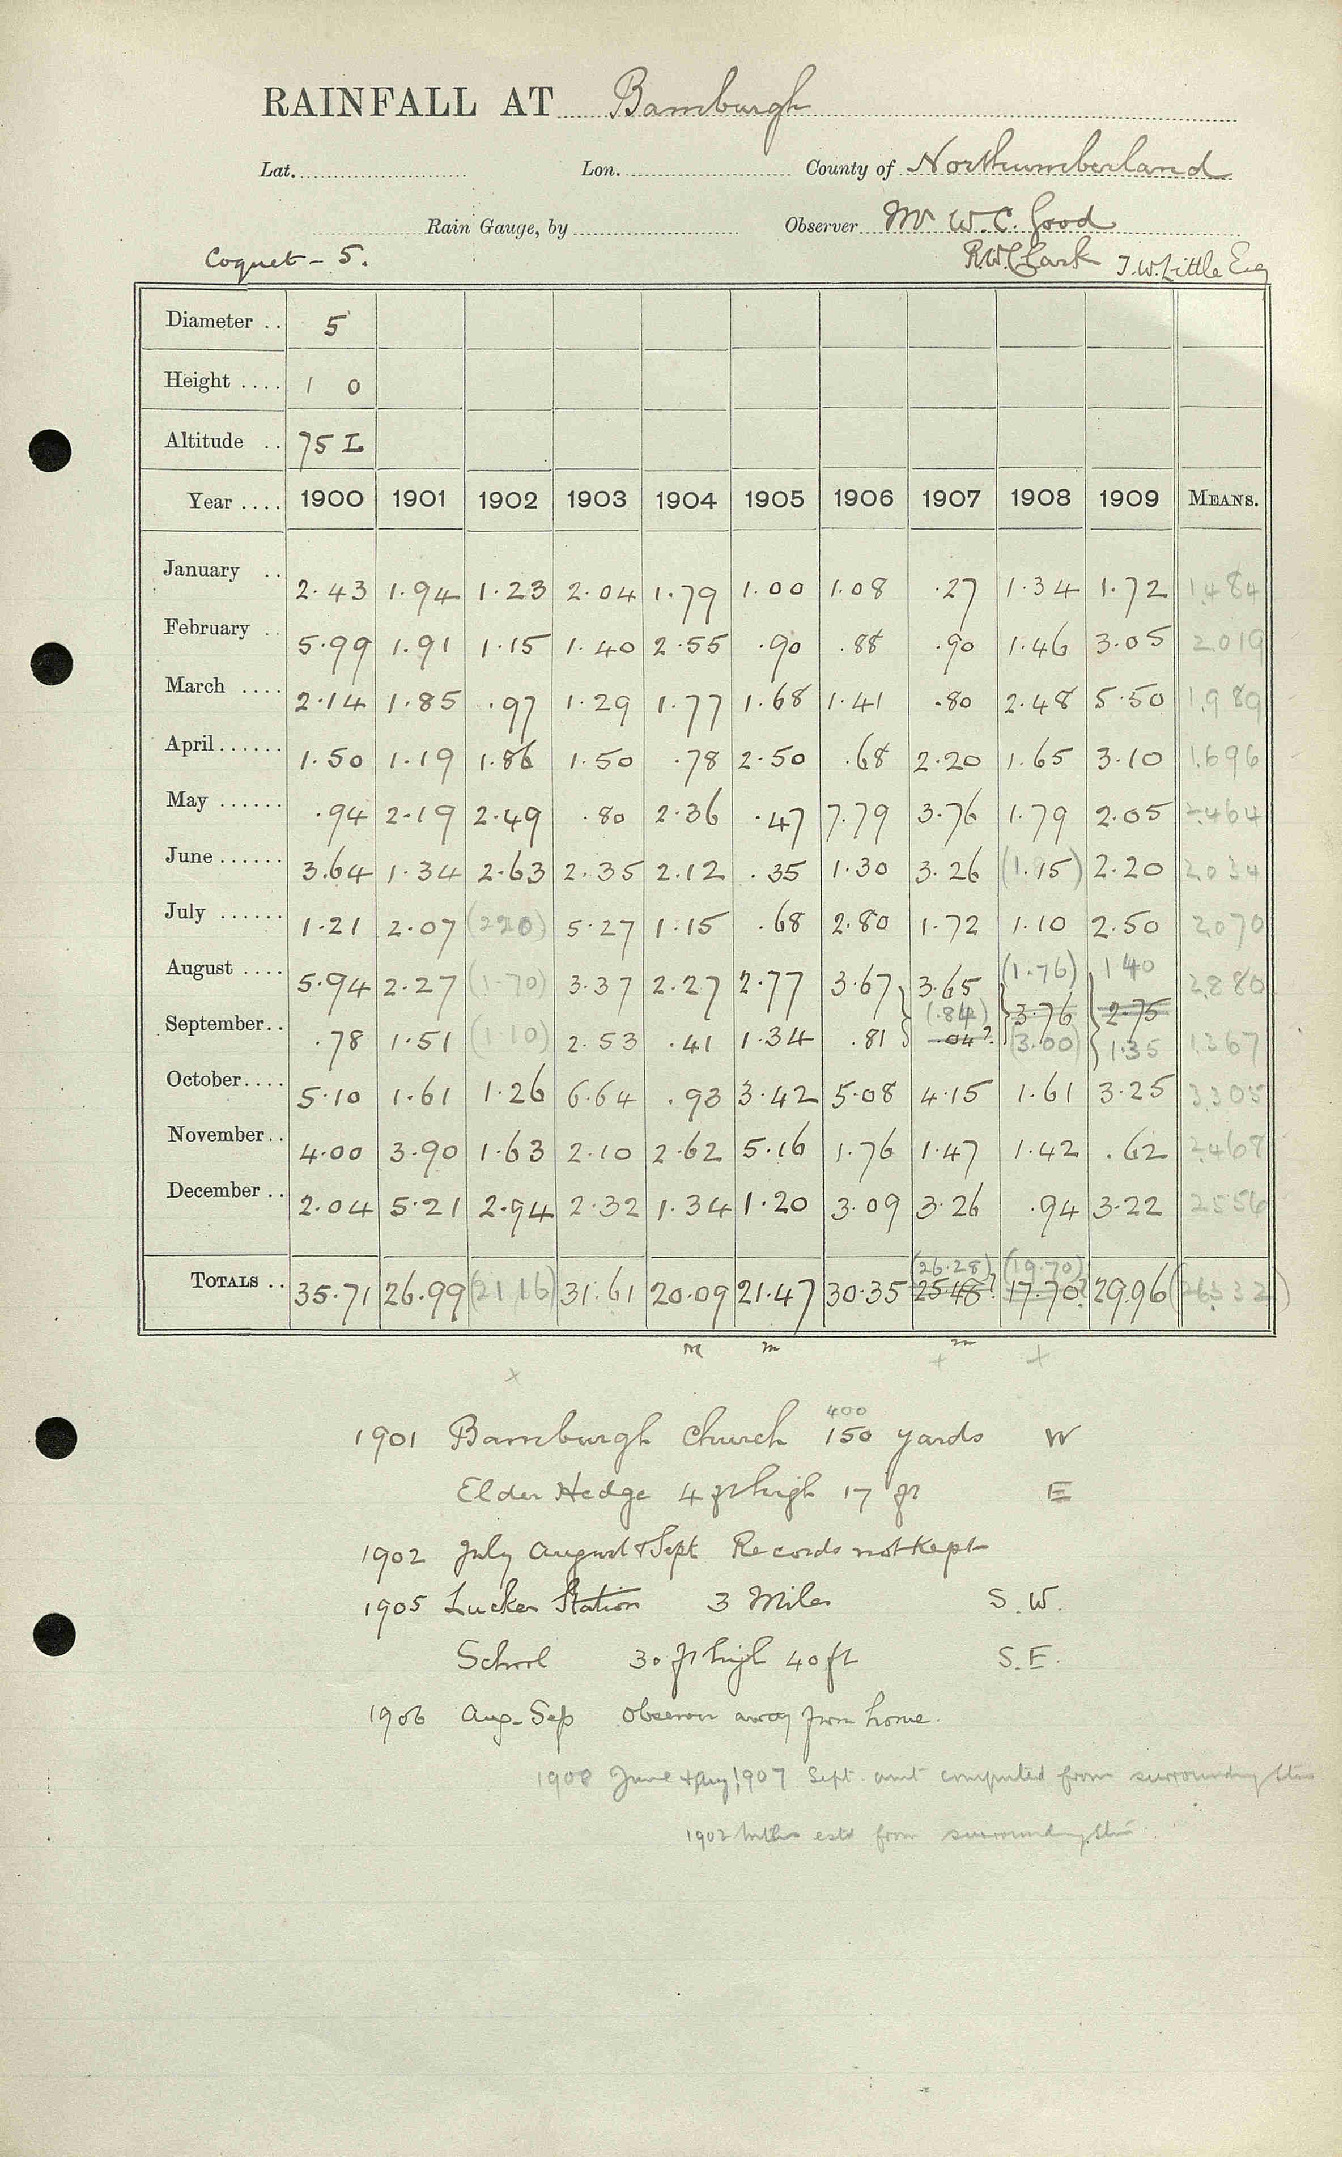 RAINFALL AT Bamburgh
Lat. Lon. County of Northumberland
Rain Gauge, by Observer Mr W. C. Good
Coquet - 5. R W Clark J. W. Little Esq
Diameter .. 5
Height .... 1 0
Altitude .. 75 L
Year .... 1900 1901 1902 1903 1904 1905 1906 1907 1908 1909 MEANS.
January .. 2.43 1.94 1.23 2.04 1.79 1.00 1.08 .27 1.34 1.72 1.484
February .. 5.99 1.91 1.15 1.40 2.55 .90 .88 .90 1.46 3.05 2.019
March .... 2.14 1.85 .97 1.29 1.77 1.68 1.41 .80 2.48 5.50 1.989
April...... 1.50 1.19 1.86 1.50 .78 2.50 .68 2.20 1.65 3.10 1.696
May ...... .94 2.19 2.49 .80 2.36 .47 7.79 3.76 1.79 2.05 2.464
June ...... 3.64 1.34 2.63 2.35 2.12 .35 1.30 3.26 (1.15) 2.20 2.034
July ...... 1.21 2.07 (2.20) 5.27 1.15 .68 2.80 1.72 1.10 2.50 2.070
August .... 5.94 2.27 (1.70) 3.37 2.27 2.77 3.67 3.65 (1.76) 1 40 2.880
(.84) 3.76 2.75
September.. .78 1.51 (1.10) 2.53 .41 1.34 .81 .04? (3.00) 1.35 1.367
October.... 5.10 1.61 1.26 6.64 .93 3.42 5.08 4.15 1.61 3.25 3.305
November.. 4.00 3.90 1.63 2.10 2.62 5.16 1.76 1.47 1.42 .62 2.468
December .. 2.04 5.21 2.94 2.32 1.34 1.20 3.09 3.26 .94 3.22 2.556
(26.28) (19.70)
TOTALS .. 35.71 26.99 (21.16) 31.61 20.09 21.47 30.35 25.48? 17.70? 29.96 (26.332)
m m m
x + +
400
1901 Bamburgh Church 150 yards W
Elder Hedge 4 ft high 17 ft E
1902 July August & Sept Records not kept
1905 Lucker Station 3 Miles S. W.
School 30 ft high 40 ft S. E.
1906 Aug - Sep Observer away from home.
1908 June & Aug, 1907 Sept. amt computed from surrounding stns
1902 estd from surrounding stns